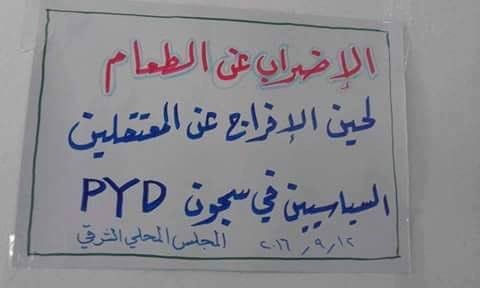 الإضراب عن الطعام
لحين الإفراج عن المعتقلين
السياسيين في سجون PYD
المجلس المحلي الشرقي ٢٠١٦/٩/١٢